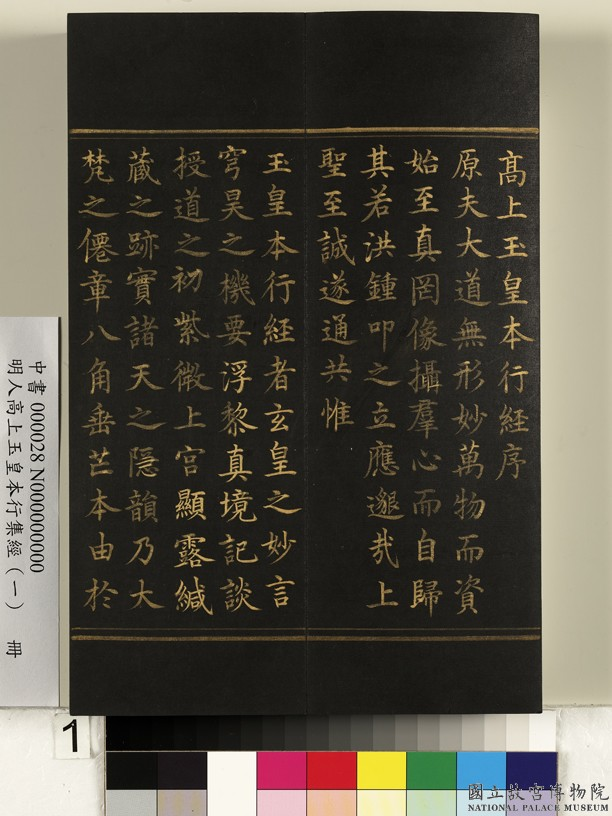 高上玉皇本行經序
原夫大道無形妙萬物而資
始至真罔像攝羣心而自歸
其若洪鍾叩之立應邈哉上
聖至誠遂通共惟
玉皇本行經者玄皇之妙言
穹昊之機要浮黎真境記談
授道之初紫微上宮顯露緘
藏之跡實諸天之隱韻乃大
梵之僊章八角垂芒本由於
中書 000028 N000000000
明人高上玉皇本行集經(一) 冊
1
國立故宮博物院
NATIONAL PALACE MUSEUM